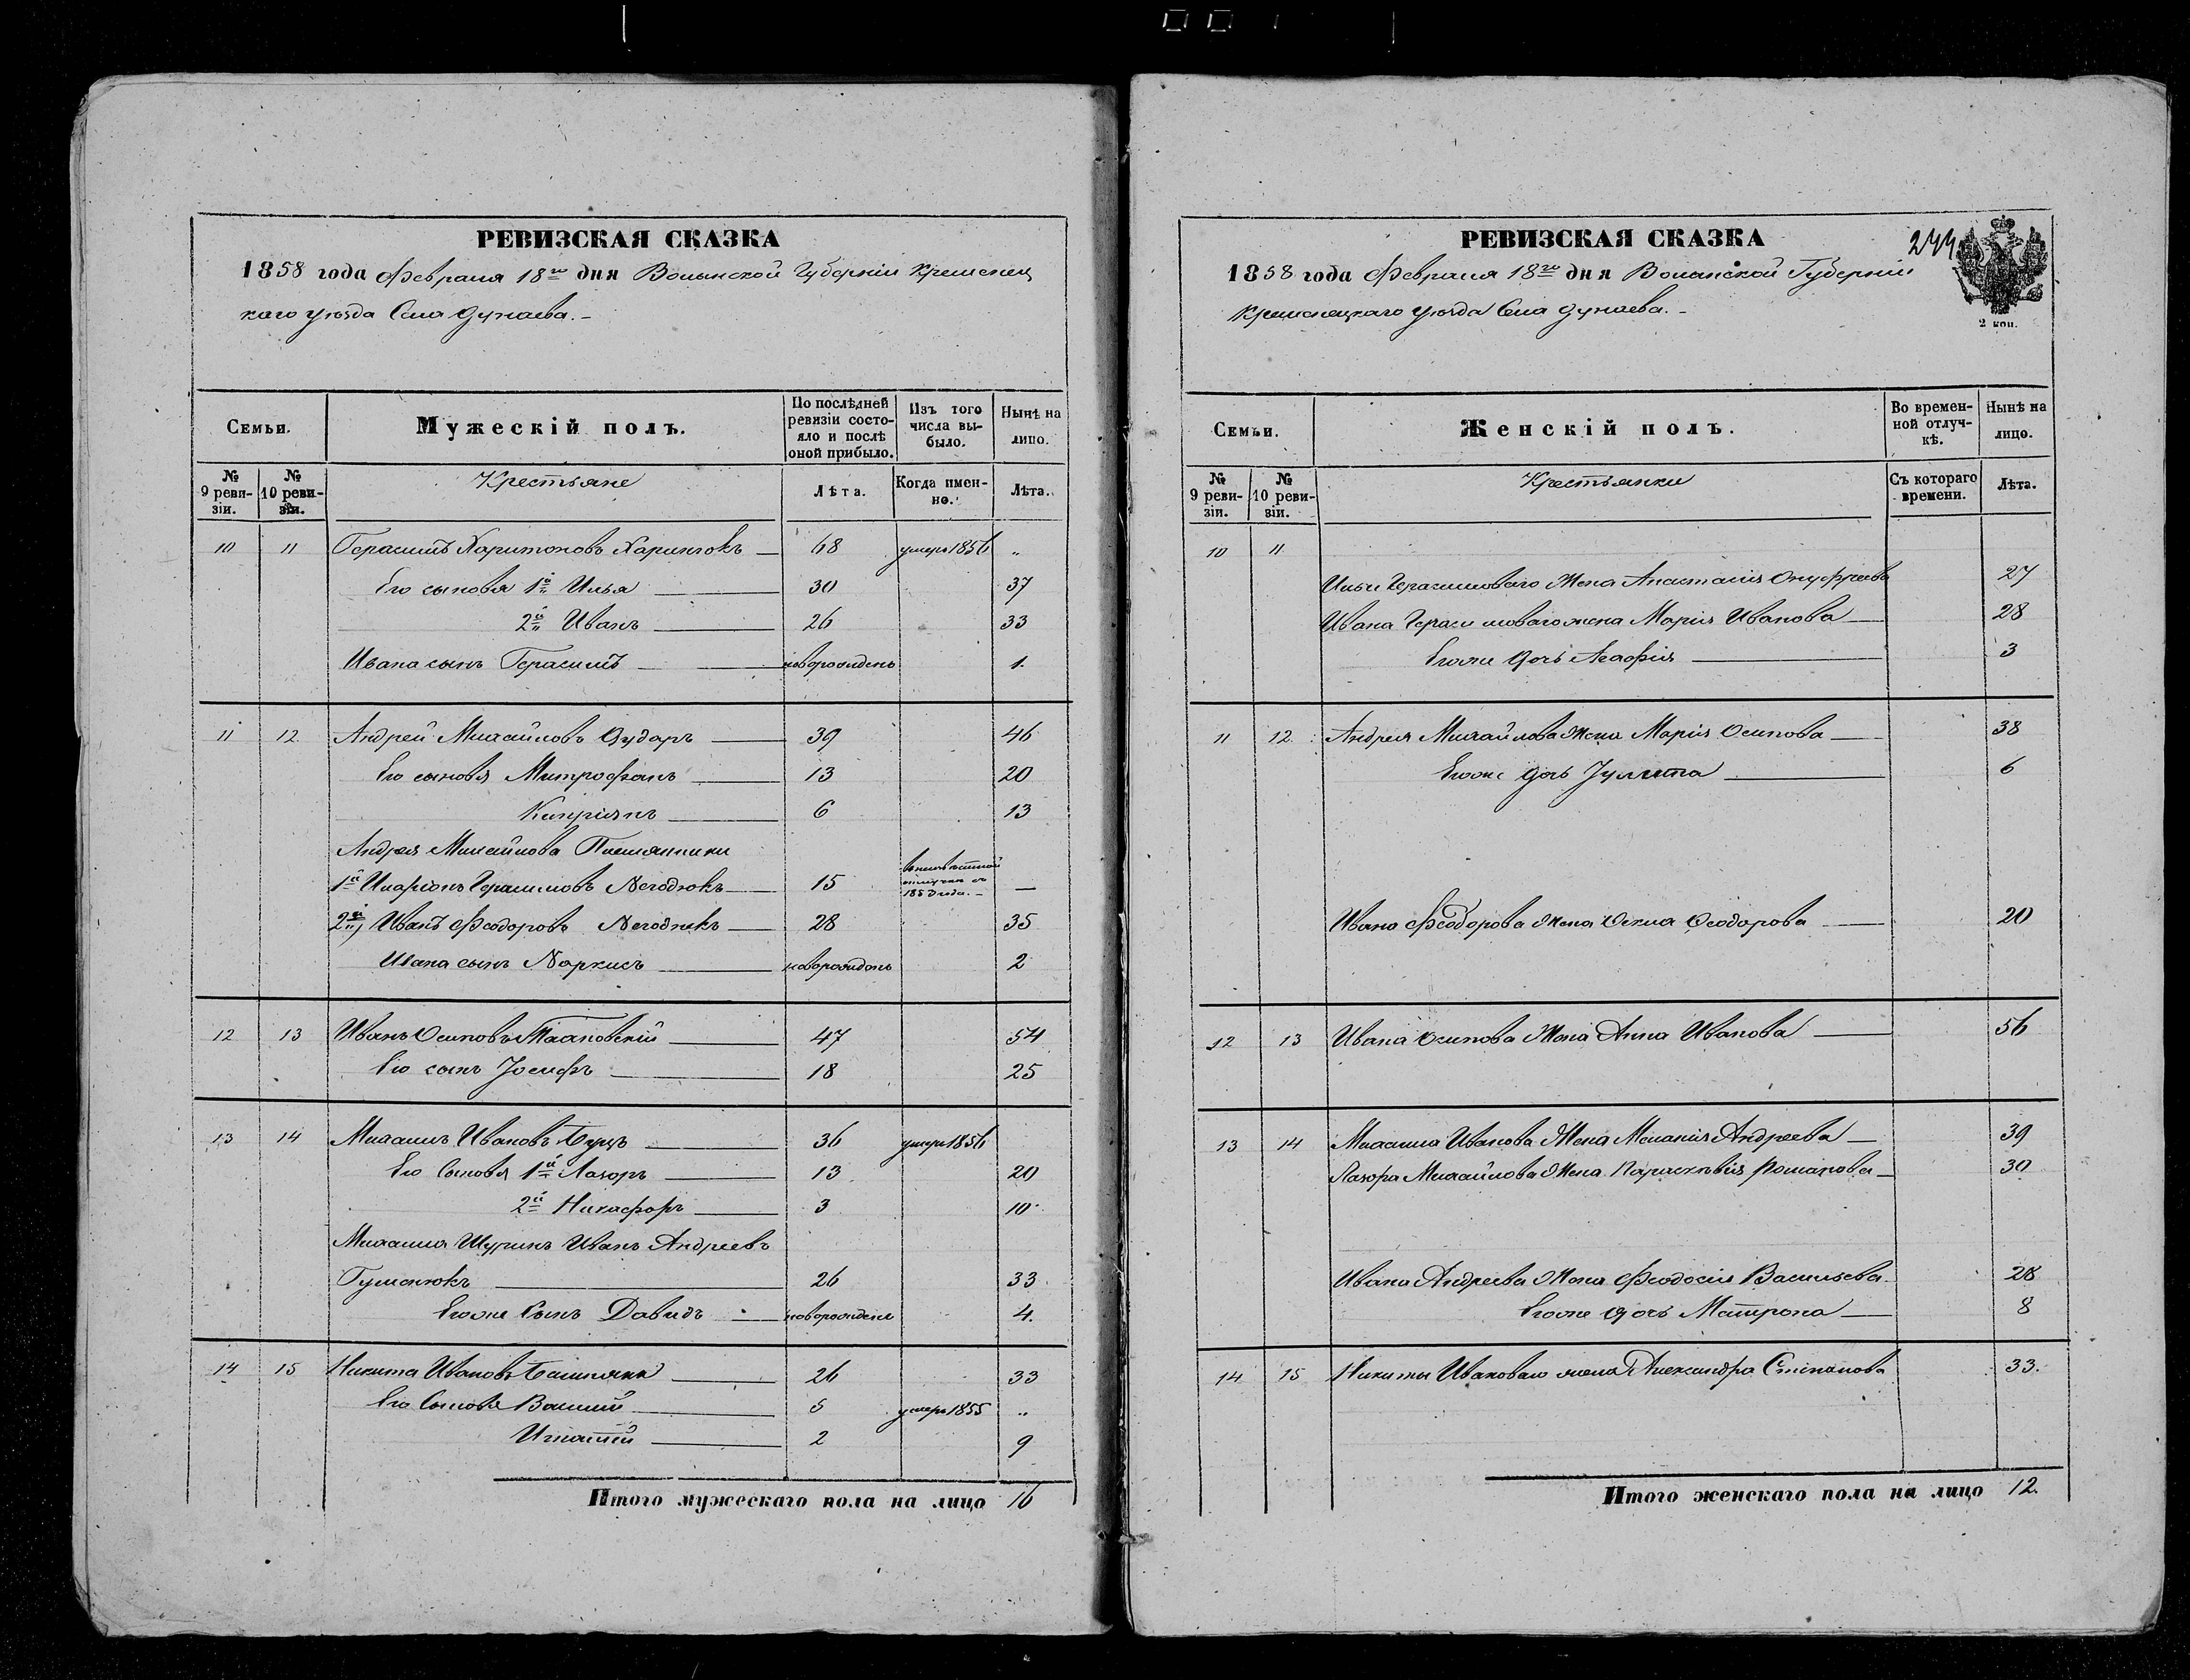 РЕВИЗСКАЯ СКАЗКА
1858 года Февраля 18го дня Волынской Губерніи Кременец
каго уѣзда Села Дунаева.
Семьи.
Мужескій полъ.
По послѣдней ревизіи состояло и послѣ оной прибыло.
Изъ того числа выбыло.
Нынѣ на лицо.
№ 9 ревизіи.
№ 10 ревизіи.
Крестьяне
Лѣта.
Когда именно.
Лѣта.
10 11 Герасимъ Харитоновъ Харитокъ 68 умеръ 1856 „
Его сыновья 1й Илья 30 37
2й Иванъ 26 33
Ивана сынъ Герасимъ новорожденъ 1.
11 12 Андрей Михайловъ Дударъ 39 46
Его сыновья Митрофанъ 13 20
Кипріянъ 6 13
Андрея Михайлова Племянники
1й Иларіонъ Герасимовъ Легодюкъ 15 1853 года. —
2й Иванъ Феодоровъ Легодюкъ 28 35
Ивана сынъ Наркисъ новорожденъ 2
12 13 Иванъ Осиповъ 47 54
Его сынъ Іосифъ 18 25
13 14 Михаилъ Ивановъ 36 умеръ 1856
Его Сыновья 1й Лазоръ 13 20
2й Никифоръ 3 10
Михаила Шуринъ Иванъ Андреевъ
Гуменюкъ 26 33
Егоже Сынъ Давидъ новорожденъ 4.
14 15 Никита Ивановъ 26 33
Его Сыновья Василій 5 умеръ 1855 „
Игнатій 2 9
Итого мужескаго пола на лицо 16
РЕВИЗСКАЯ СКАЗКА
244
1858 года Февраля 18го дня Волынской Губерніи
Кременецкаго уѣзда Села Дунаева.
2 коп.
Семьи.
Женскій полъ.
Во временной отлучкѣ.
Нынѣ на лицо.
№ 9 ревизіи.
№ 10 ревизіи.
Крестьянки
Съ котораго времени.
Лѣта.
10 11
Ильи Герасимоваго Жена Анастасія Онуфреева 27
Ивана Герасимоваго жена Марія Иванова 28
Егоже дочь Агафія 3
11 12 Андрея Михайлова Жена Марія Осипова 38
Егоже дочь Іулита 6
Ивана Феодорова Жена Фекла Феодорова 20
12 13 Ивана Осипова Жена Анна Иванова 56
13 14 Михаила Иванова Жена Меланія Андреева 39
Лазора Михайлова Жена Параскевія Романова 30
Ивана Андреева Жена Феодосія Васильева 28
Егоже дочь Матрона 8
14 15 Никиты Ивановаго жена Александра Степанова 33.
Итого женскаго пола на лицо 12.